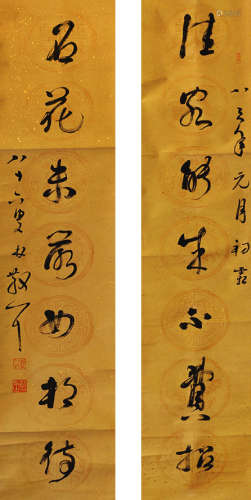 佳客能來不費招
八三年元月初霽
名花未落如相待
八十六叟林散耳